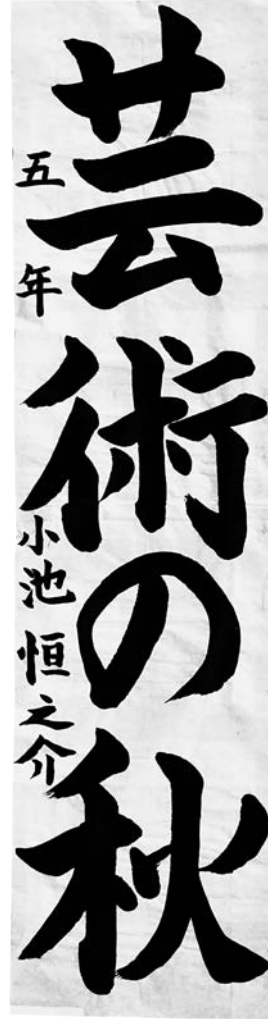 芸術の秋
五年 小池恒之介